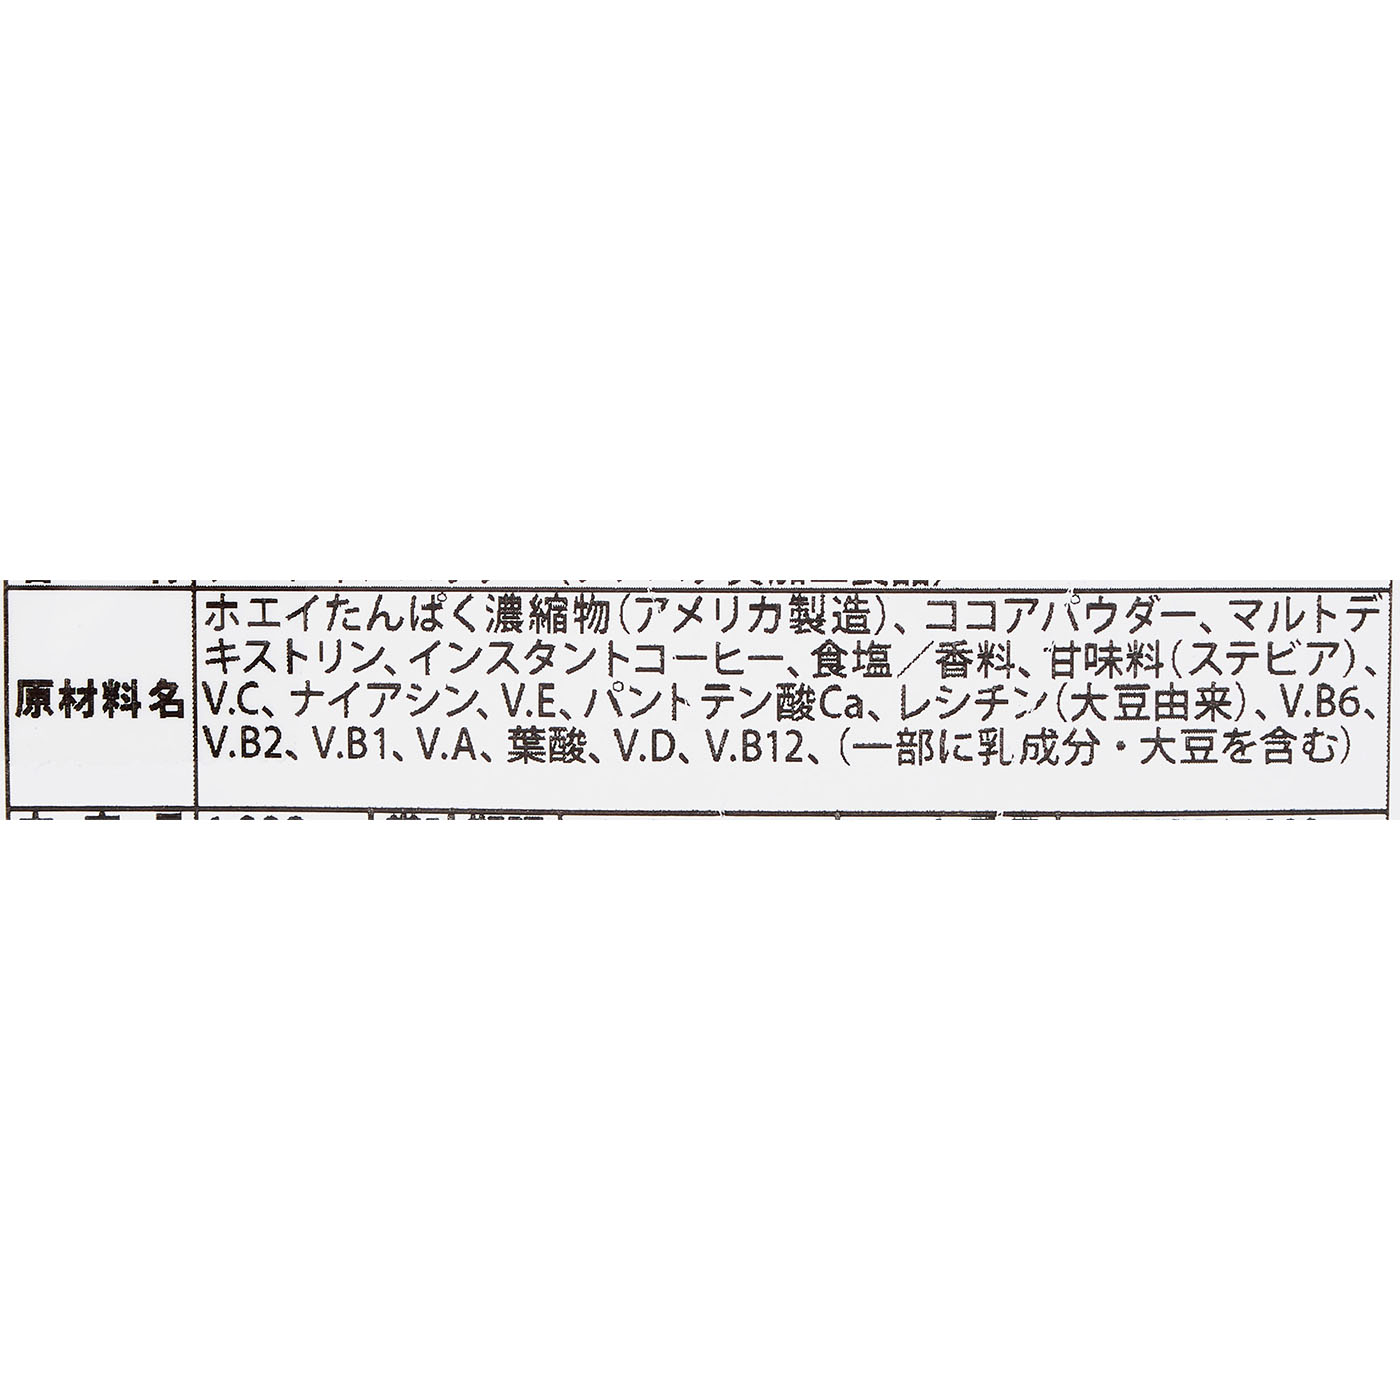 ホエイたんぱく濃縮物（アメリカ製造）、ココアパウダー、マルトデ
キストリン、インスタントコーヒー、食塩／香料、甘味料（ステビア）、
原材料名
V.C、ナイアシン、V.E、パントテン酸Ca、レシチン（大豆由来）、V.B6、
V.B2、V.B1、V.A、葉酸、V.D、V.B12、（一部に乳成分・大豆を含む）